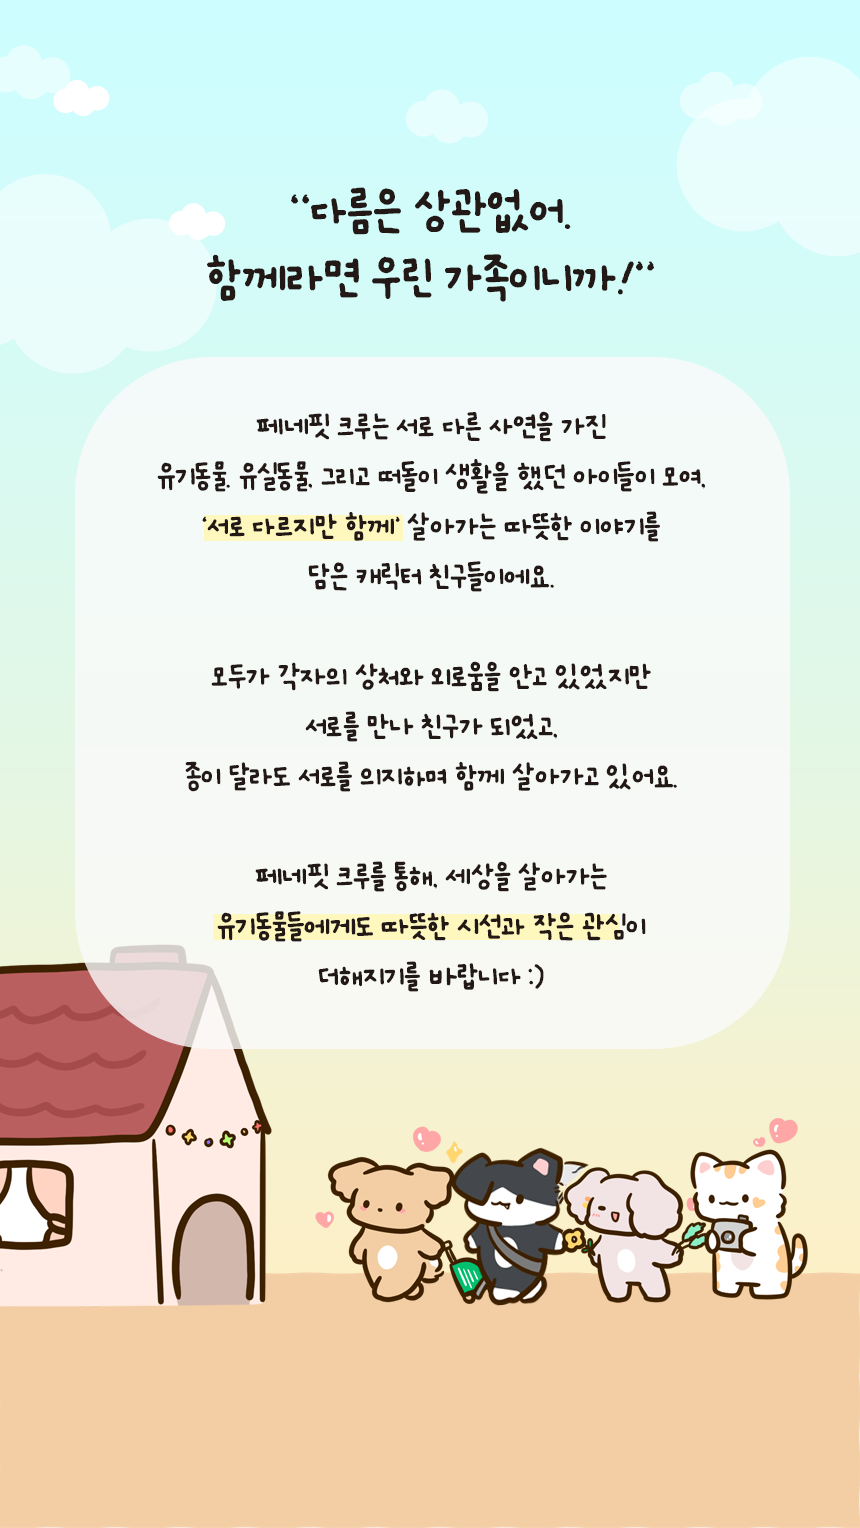 “다름은 상관없어.
함께라면 우린 가족이니까!“
페네핏 크루는 서로 다른 사연을 가진
유기동물, 유실동물, 그리고 떠돌이 생활을 했던 아이들이 모여,
‘서로 다르지만 함께’ 살아가는 따뜻한 이야기를
담은 캐릭터 친구들이에요.
모두가 각자의 상처와 외로움을 안고 있었지만
서로를 만나 친구가 되었고,
종이 달라도 서로를 의지하며 함께 살아가고 있어요.
페네핏 크루를 통해, 세상을 살아가는
유기동물들에게도 따뜻한 시선과 작은 관심이
더해지기를 바랍니다 :)